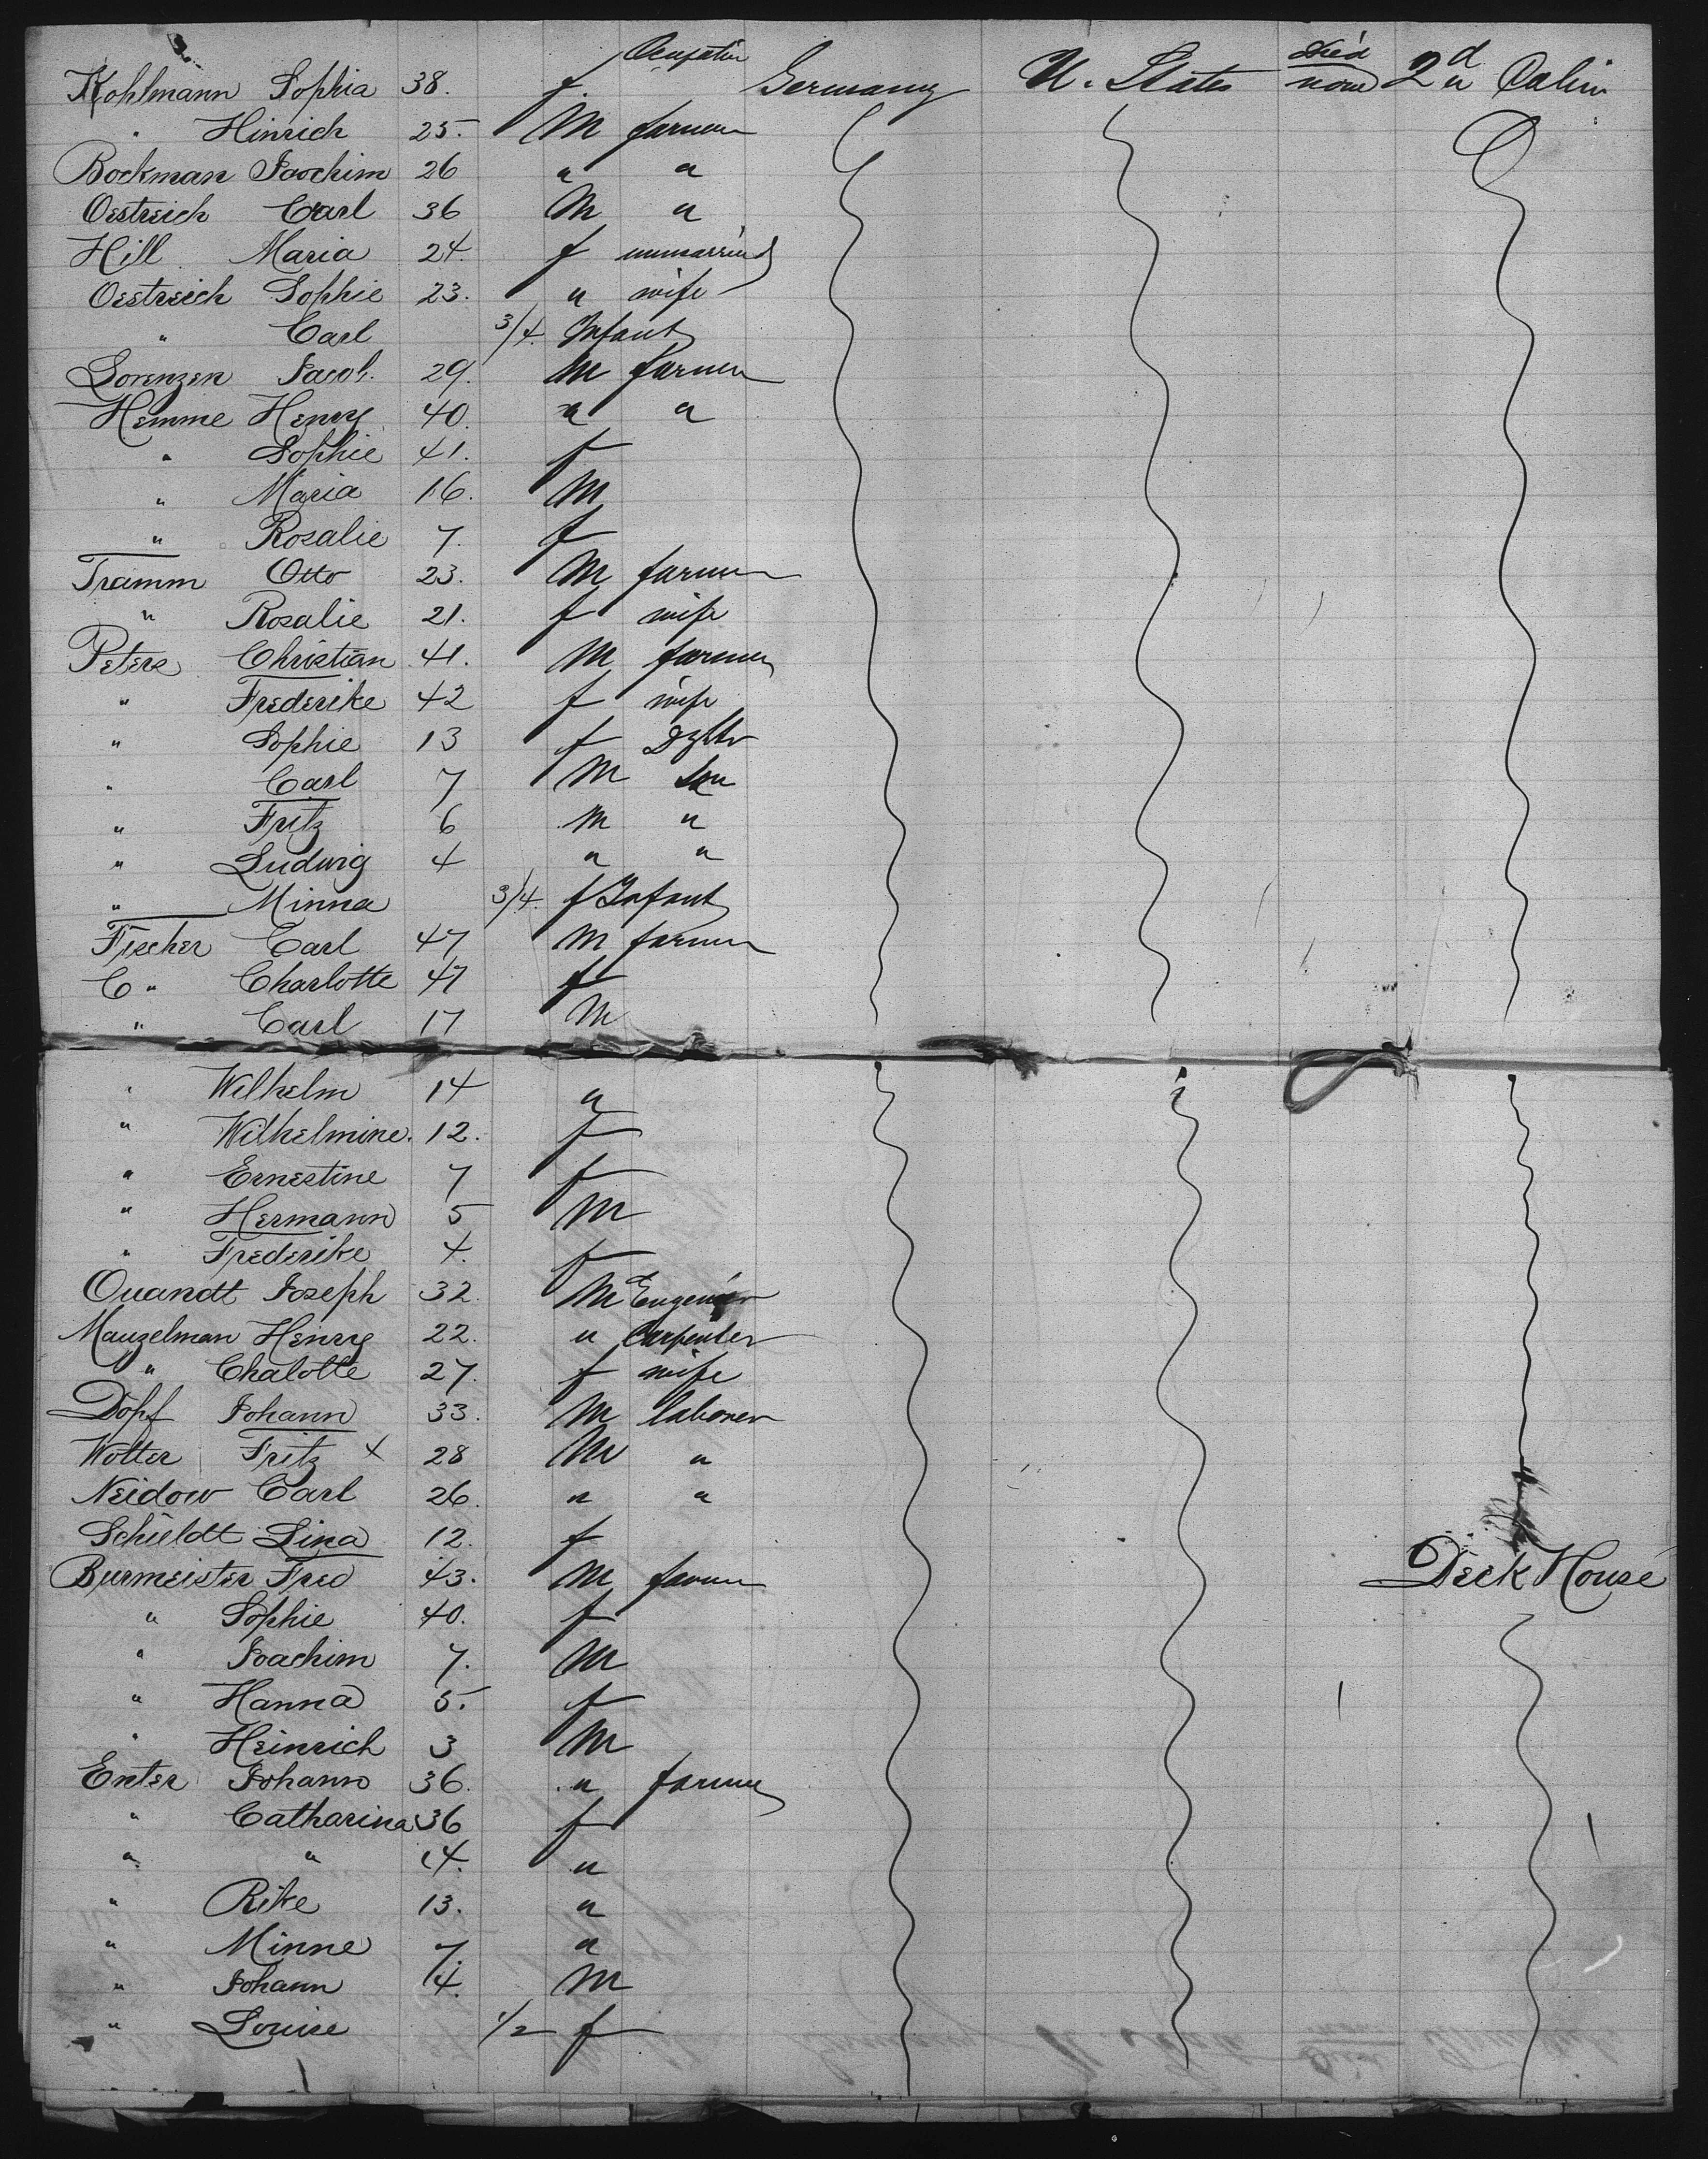 Ocupation Died
Kohlmann Sophia 38. f. Germany U. States none 2d Cabin
" Hinrich 25. M farmer
Bockman Joachim 26 " "
Oestreich Carl 36 M "
Hill Maria 24. f unmarried
Oestreich Sophie 23. " wife
" Carl 3/4. Infant
Lorenzen Jacob. 29. M farmer
Hemme Henry 40. " "
" Sophie 41. f
" Maria 16. M
" Rosalie 7. f
Tramm Otto 23. M farmer
" Rosalie 21. f wife
Peters Christian 41. M farmer
" Frederike 42 f wife
" Sophie 13 f Dghtr
" Carl 7 M Son
" Fritz 6 M "
" Ludwig 4 " "
" Minna 3/4. f Infant
Fischer Carl 47 M farmer
C " Charlotte 47 f
" Carl 17 M
" Wilhelm 14 "
" Wilhelmine. 12. f
" Ernestine 7 f
" Hermann 5 M
" Frederike 4. f
Quandt Joseph 32. M Engenier
Mauzelman Henry 22. " Carpenter
" Chalotte 27. f wife
Döpf Johann 33. M laborer
Wotter Fritz x 28 M "
Neidow Carl 26. " "
Schieldt Lina 12. f
Burmeister Fred 43. M farmer Deck House
" Sophie 40. f
" Joachim 7. M
" Hanna 5. f
" Heinrich 3 M
Enter Johann 36. " farmer
" Catharina 36 f
" " 14. "
" Rike 13. "
" Minne 7. "
" Johann 4. M
" Louise 1/2 f